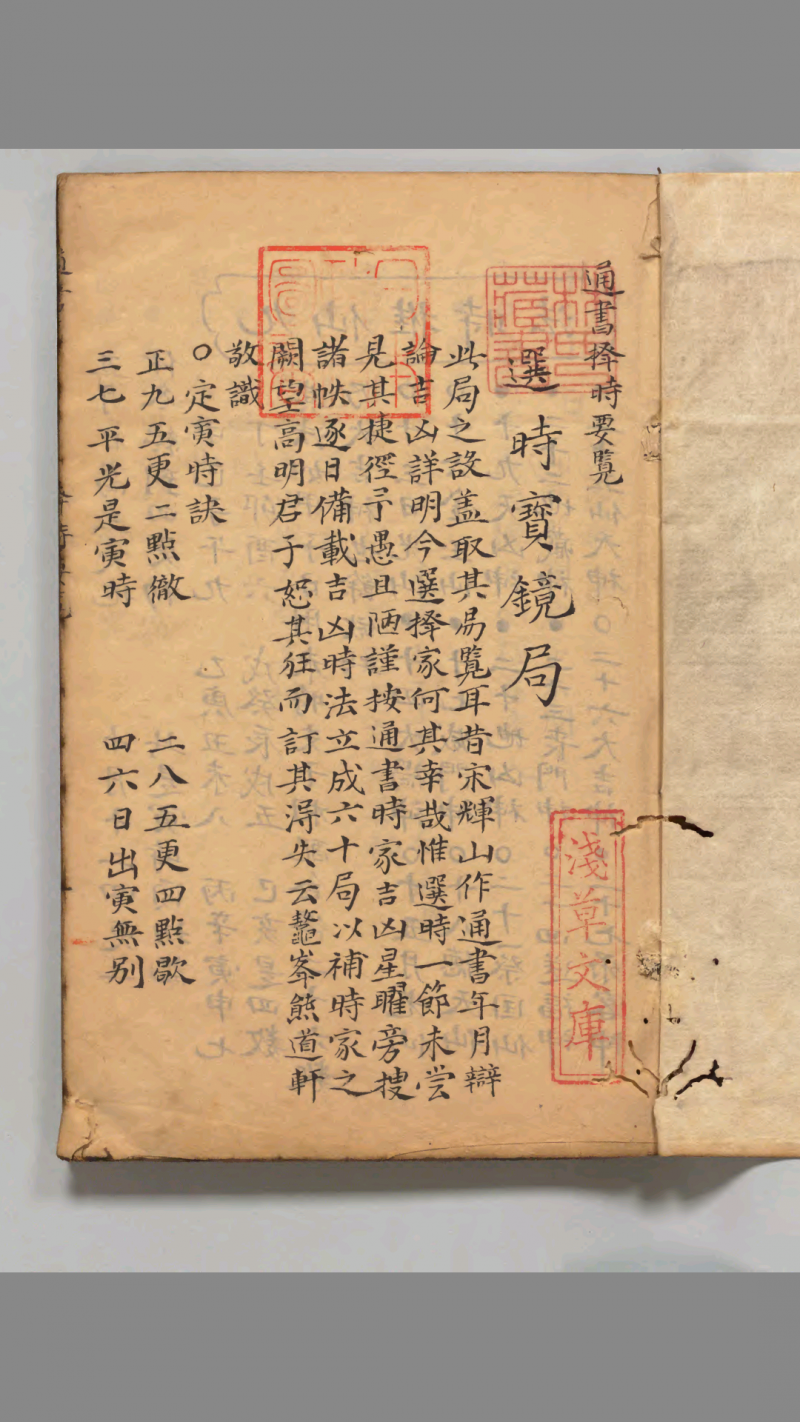 通書擇時要覽
選時寶鏡局
此局之設盖取其易覽耳昔宋輝山作通書年月辯
論吉凶詳明今選擇家何其幸哉惟選時一節未尝
見其捷徑予愚且陋謹按通書時家吉凶星曜旁搜
諸帙逐日備載吉凶時法立成六十局以補時家之
闕望高明君子恕其狂而訂其淂失云鼇峯熊道軒
敬識
○定寅時訣
正九五更二點徹 二八五更四點歇
三七平光是寅時 四六日出寅無别
淺草文庫